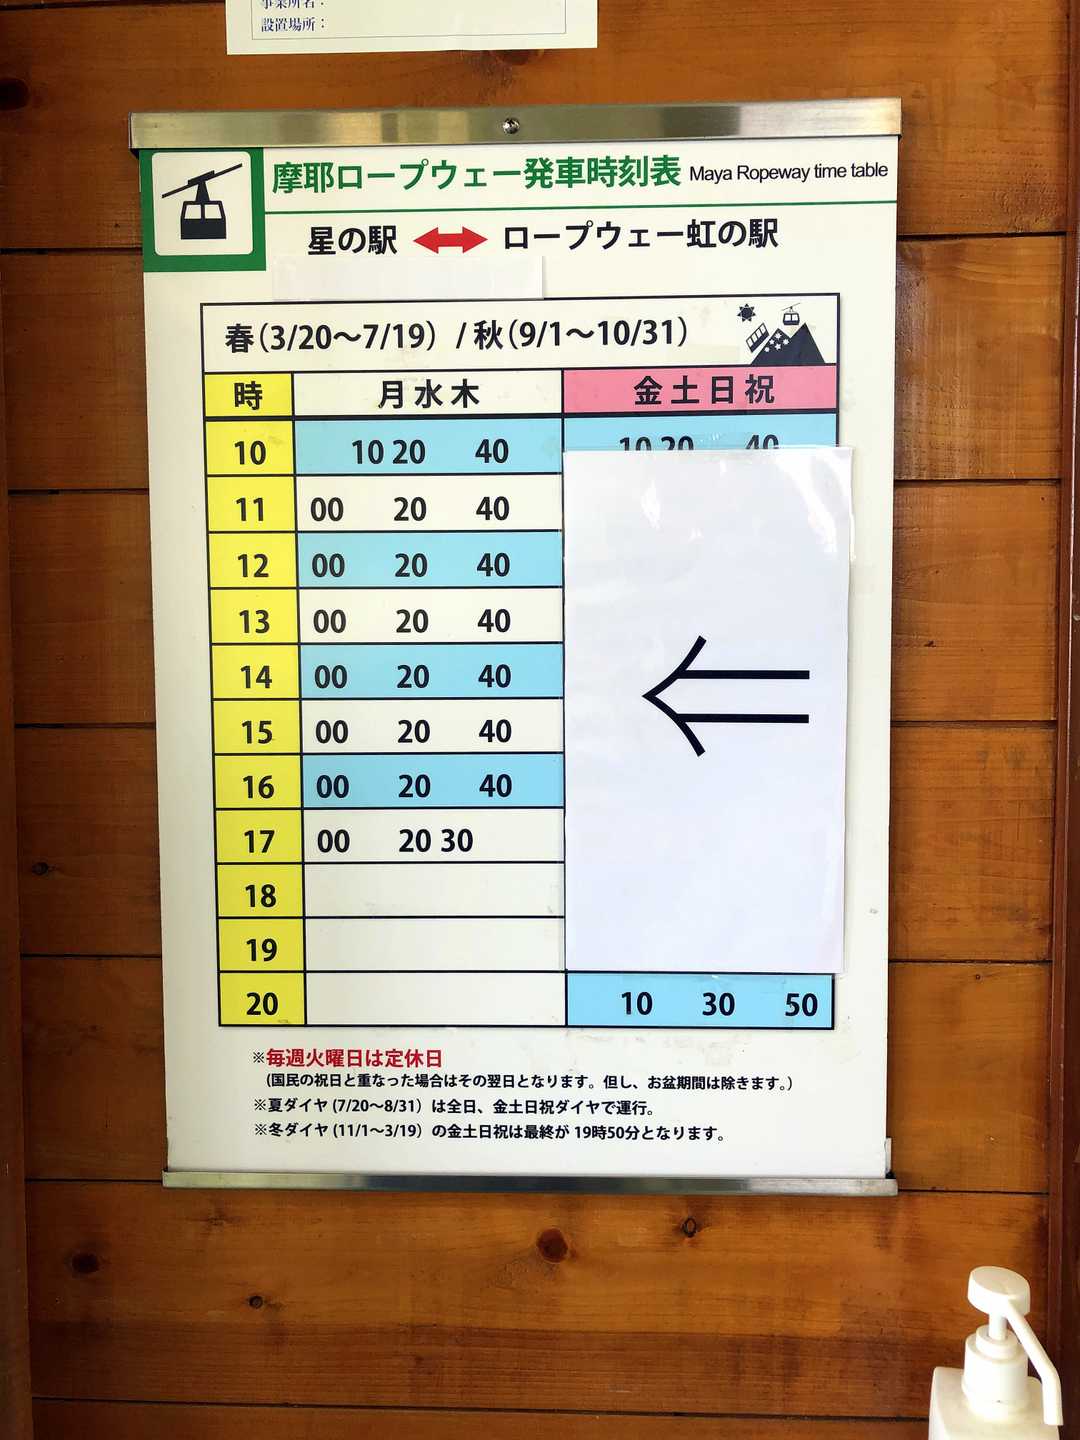 事業所名:
設置場所:
摩耶ロープウェー発車時刻表 Maya Ropeway time table
星の駅 ロープウェー虹の駅
春(3/20〜7/19) / 秋(9/1〜10/31)
時 月水木 金土日祝
10 10 20 40 10 20 40
11 00 20 40
12 00 20 40
13 00 20 40
14 00 20 40
15 00 20 40
16 00 20 40
17 00 20 30
18
19
20 10 30 50
※毎週火曜日は定休日
(国民の祝日と重なった場合はその翌日となります。但し、お盆期間は除きます。)
※夏ダイヤ (7/20〜8/31) は全日、金土日祝ダイヤで運行。
※冬ダイヤ (11/1〜3/19) の金土日祝は最終が 19時50分となります。